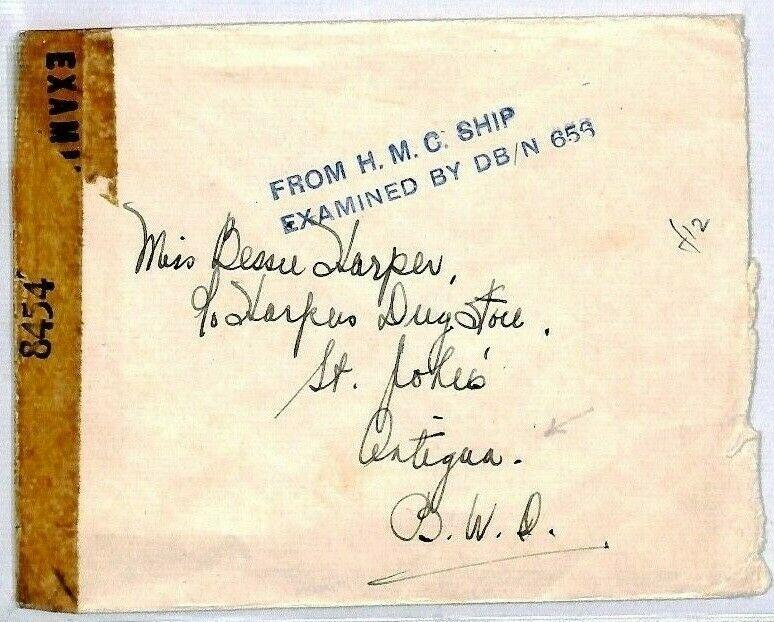 EXAMI
8454
FROM H. M. C. SHIP
EXAMINED BY DB/N 656
Miss Bessie Harper,
c/o Harpers Drug Store.
St. John's
Antigua.
B. W. I.